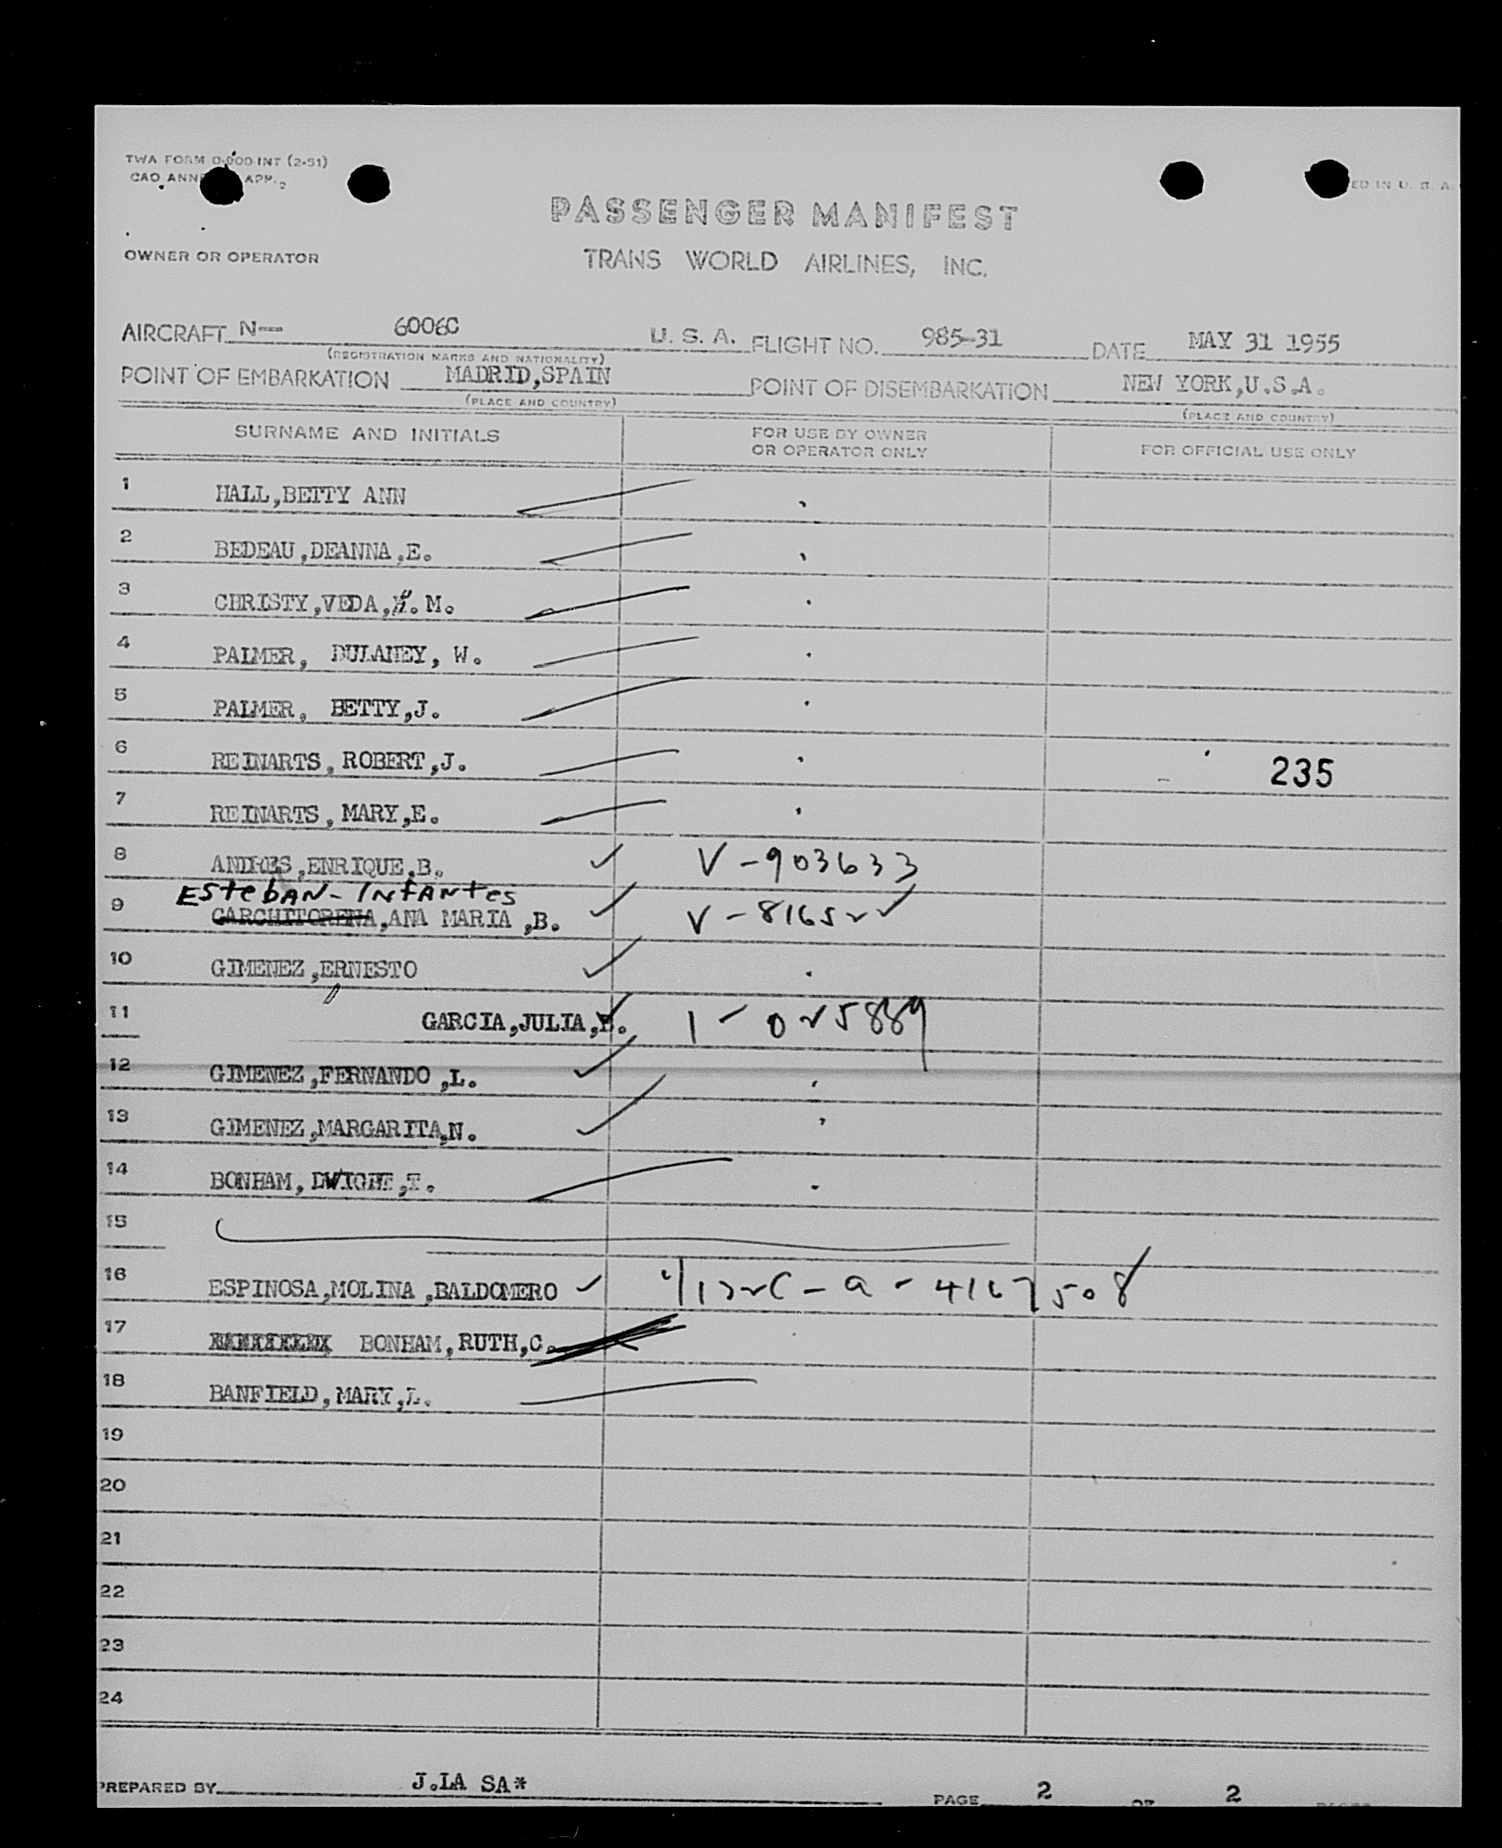 TWA FORM
CAO ANN
ED IN U. S. A.
PASSENGER MANIFEST
OWNER OR OPERATOR
TRANS WORLD AIRLINES, INC.
AIRCRAFT N-- 6006C U. S. A. FLIGHT NO. 985-31 DATE MAY 31 1955
(REGISTRATION MARKS AND NATIONALITY)
POINT OF EMBARKATION MADRID,SPAIN POINT OF DISEMBARKATION NEW YORK,U.S.A.
(PLACE AND COUNTRY) (PLACE AND COUNTRY)
SURNAME AND INITIALS FOR USE BY OWNER OR OPERATOR ONLY FOR OFFICIAL USE ONLY
1 HALL,BETTY ANN
2 BEDEAU,DEANNA,E.
3 CHRISTY,VEDA, M.
4 PALMER, DULANEY, W.
5 PALMER, BETTY,J.
6 REINARTS, ROBERT,J. 235
7 REINARTS, MARY,E.
8 ANDRES,ENRIQUE,B. V-903633
Esteban-Infantes
9 GARCHITORENA,ANA MARIA ,B. V-816522
10 GIMENEZ,ERNESTO
11 GARCIA,JULIA, 1-025889
12 GIMENEZ,FERNANDO,L.
13 GIMENEZ,MARGARITA,N.
14 BONHAM, DWIGHT,T.
15
16 ESPINOSA,MOLINA,BALDOMERO
17 BONHAM,RUTH,C.
18 BANFIELD,MARY,L.
19
20
21
22
23
24
PREPARED BY J.LA SA* PAGE 2 OF 2